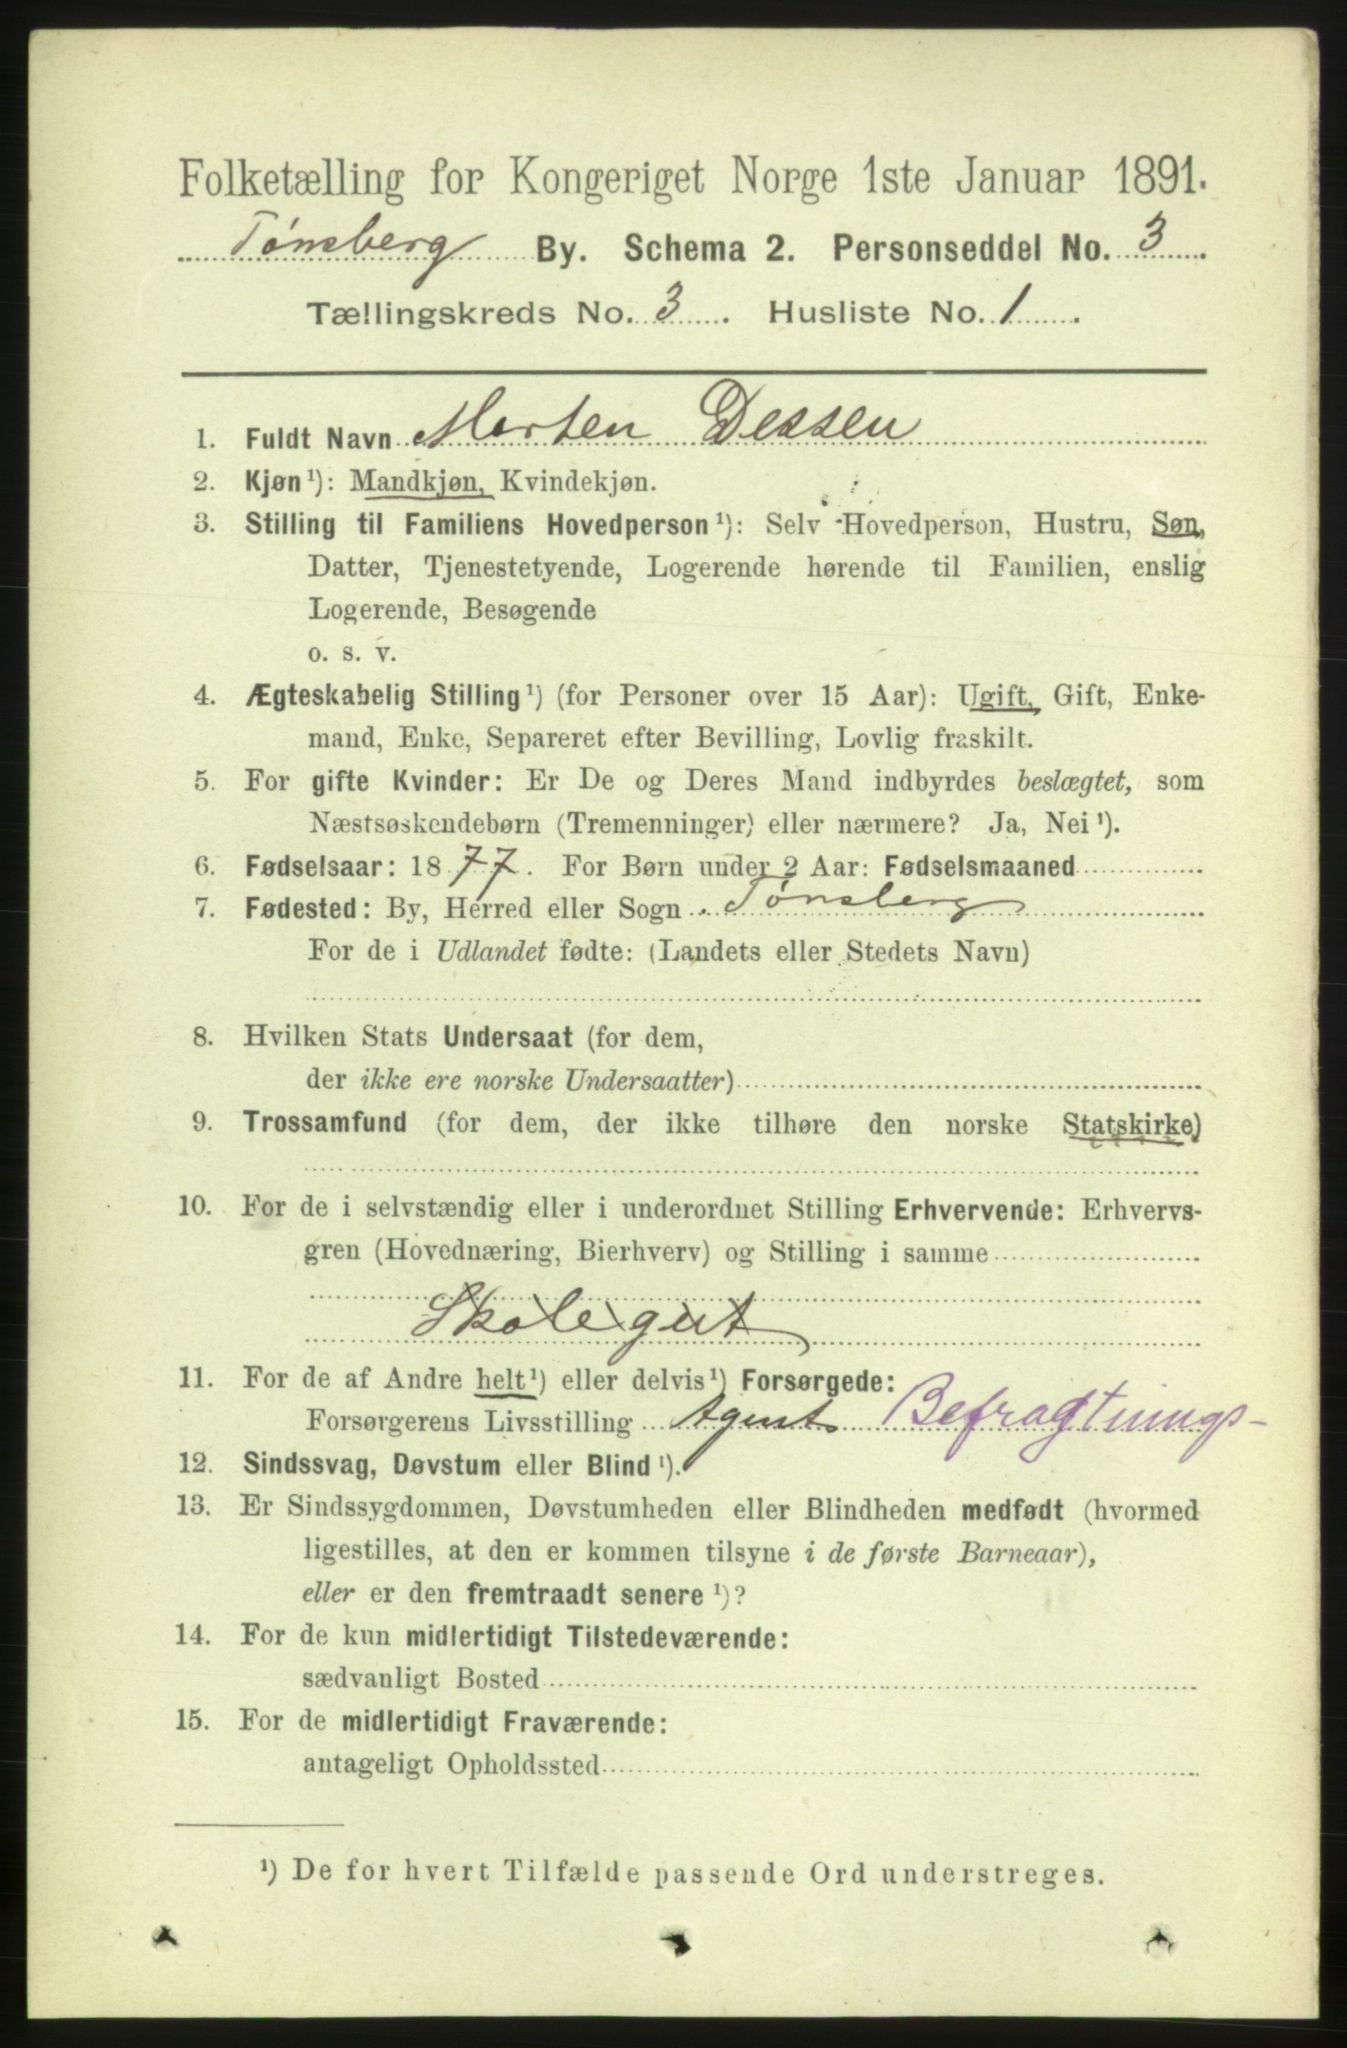 Folketælling for Kongeriget Norge 1ste Januar 1891.
Tønsberg By. Schema 2. Personseddel No. 3
Tællingskreds No. 3. Husliste No. 1.
1. Fuldt Navn Morten Dessen
2. Kjøn¹): Mandkjøn, Kvindekjøn.
3. Stilling til Familiens Hovedperson¹): Selv Hovedperson, Hustru, Søn,
Datter, Tjenestetyende, Logerende hørende til Familien, enslig
Logerende, Besøgende
o. s. v.
4. Ægteskabelig Stilling¹) (for Personer over 15 Aar): Ugift, Gift, Enke-
mand, Enke, Separeret efter Bevilling, Lovlig fraskilt.
5. For gifte Kvinder: Er De og Deres Mand indbyrdes beslægtet, som
Næstsøskendebørn (Tremenninger) eller nærmere? Ja, Nei¹).
6. Fødselsaar: 1877. For Børn under 2 Aar: Fødselsmaaned
7. Fødested: By, Herred eller Sogn Tønsberg
For de i Udlandet fødte: (Landets eller Stedets Navn)
8. Hvilken Stats Undersaat (for dem,
der ikke ere norske Undersaatter)
9. Trossamfund (for dem, der ikke tilhøre den norske Statskirke)
10. For de i selvstændig eller i underordnet Stilling Erhvervende: Erhvervs-
gren (Hovednæring, Bierhverv) og Stilling i samme
Skolegut
11. For de af Andre helt¹) eller delvis¹) Forsørgede:
Forsørgerens Livsstilling Agent Befragtnings-
12. Sindssvag, Døvstum eller Blind¹).
13. Er Sindssygdommen, Døvstumheden eller Blindheden medfødt (hvormed
ligestilles, at den er kommen tilsyne i de første Barneaar),
eller er den fremtraadt senere¹)?
14. For de kun midlertidigt Tilstedeværende:
sædvanligt Bosted
15. For de midlertidigt Fraværende:
antageligt Opholdssted
¹) De for hvert Tilfælde passende Ord understreges.